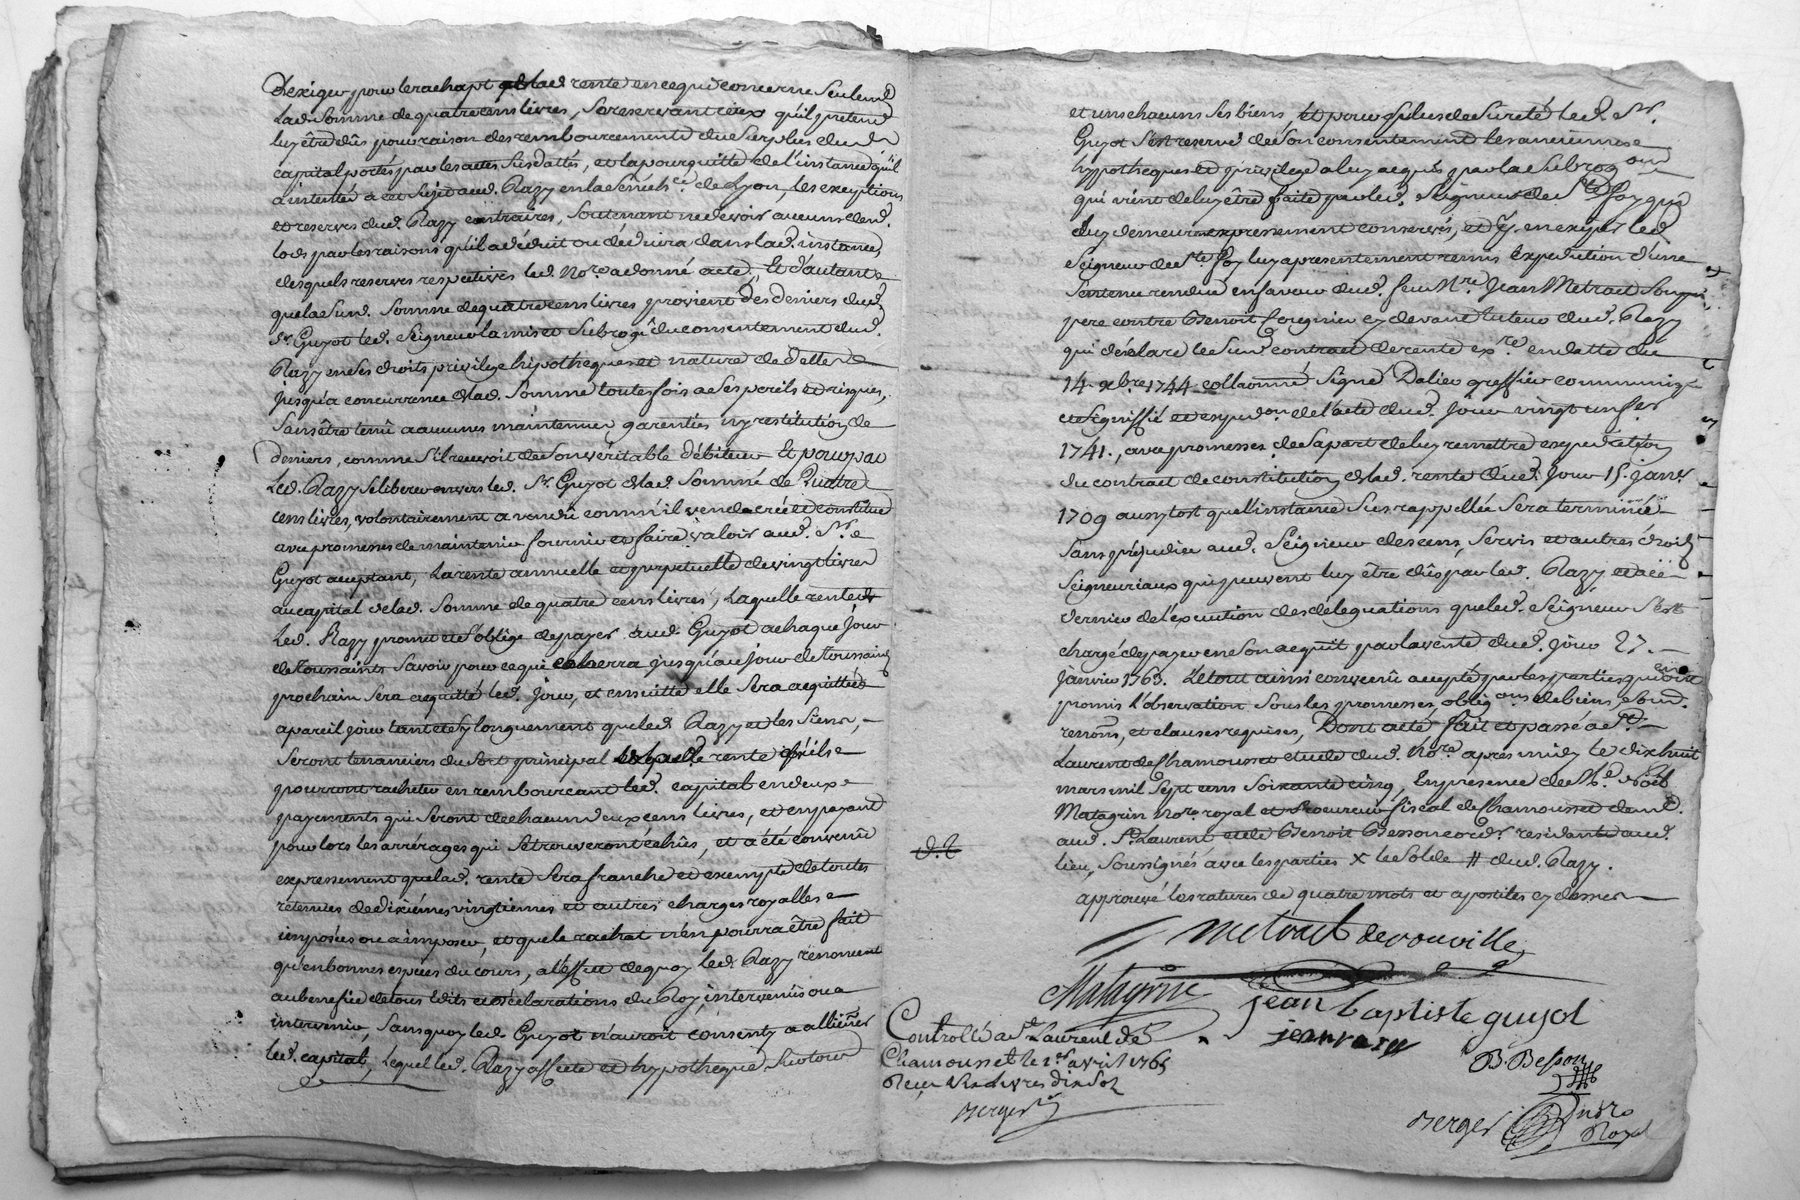 d'exiger pour le rachapt de lad rente en ce qui concerne seulemt
lad. somme de quatre cens livres, se reservant ceux qu'il pretend
luy être dûs pour raison des remboursements du surplus du d
capital portés par les actes susdattés, et la poursuitte de l'instance qu'il
a intenté à ce sujet aud. Razy en la Sénéch.ée de Lyon, les exeptions
et reserves dud. Razy contraires, soutenant ne devoir aucuns de
lods par les raisons qu'il a déduit ou déduira dans lad. instance,
desquels reserves respectives led. No.re a donné acte, Et d'autant
que la sud. somme de quatre cens livres provient des deniers dud.
Sr. Guyot led. Seigneur l'a mis et subrogé du consentement dud.
Razy en ses droits privilege hipotheques et nature de d'elle
jusqu'a concurrence de lad. somme toutesfois a ses perils et risques,
sans être tenû a aucunes maintenue garenties ny restitution de
deniers, comme s'il recevoit de son veritable débiteur Et pour par
led. Razy se liberer envers led. Sr. Guyot de lad somme de Quatre
cens livres, volontairement a vendû comm'il vend crée et constitue
avec promesses de maintenir fournir et faire valoir aud. Sr.
Guyot acceptant, la rente annuelle et perpetuelle de vingt livres
au capital de lad. somme de quatre cens livres, laquelle rente
led. Razy promet et s'oblige de payer aud. Guyot a chaque jour
de Toussaints savoir pour ce qui echerra jusqu'au jour de Toussaint
prochain sera acquitté led. jour, et ensuitte elle sera acquittée
a pareil jour tant et sy longuement que led. Razy et les siens,
seront tenanciers du sort principal laquelle rente qu'ils
pourront racheter en remboursant led. capital en deux
payements qui seront de chacun deux cens livres, et en payant
pour lors les arrérages qui se trouveront échûs, et a été convenû
expressement que lad. rente sera franche et exempte de toutes
retenues de dixiémes vingtiemes et autres charges royalles
imposées ou a imposer, et que le rachat n'en pourra être fait
qu'en bonnes espéces du cours, a l'effet de quoy led. Razy renoncent
au benefice de tous edits et declarations du Roy, intervenûs ou a
intervenir, sans quoy led. Guyot n'auroit consenty a alliéner
led. capital, lequel led. Razy affecte et hypotheque sur tous
et uns chacuns ses biens, et pour plus de sureté led. Sr.
Guyot s'est reservé de son consentement les anciennes
hypotheques et privilege a luy acquis par la subrogaon
qui vient de luy être faite par led. Seigneur de Ste Foy qui
luy demeurs expressement conservés, et y en exiger led
Seigneur de Ste. Foy luy a presentement remis Expedition d'une
Sentence rendue en faveur dud. feu Mre. Jean Metrat son
pere contre Benoit Cougnier cy devant tuteur dud. Razy
qui déclare le sud. contract de rente ex.re en datte du
14. xbre 1744 collaonné signé Dalier greffier communiq
et signiffié et expedon de l'acte dud. jour vingt un fer
1741., avec promesses de sa part de luy remettre expedition
du contract de constitution de lad. rente dud. jour 15. janv.
1709 aussytost que l'instance sus rappellée sera terminée
sans préjudice aud. Seigneur des cens, servis et autres droits
seigneuriaux qui peuvent luy être dûs par led. Razy et a ce
dernier de l'exécution des délegations que led. Seigneur s'est
chargé de payer en son acquit par la vente dud. jour 27.
janvier 1763. Le tout ainsi convenû accepté par les parties qui ont
promis l'observation sous les promesses, obligons de biens,
renons, et clauses requises, Dont acte fait et passé a St.
Laurent de Chamousset etude dud. No.re apres midy le dix huit
mars mil sept cens soixante cinq, En presence de Me. Noël
Matagrin No.re royal et Procureur fiscal de Chamousset demt.
aud. St. Laurent et de Benoit Besson cordr. residant aud.
lieu, soussignés avec les parties x le solde # dud. Razy.
approuvé les ratures de quatre mots et apostiles cy dessus
Metrat de rouville
Matagrin
jean baptiste guyot
jean razy
B Besson
Controllé a St. Laurent de
Chamousset le 1er avril 1765
Berger
Berger
No.re
Royal